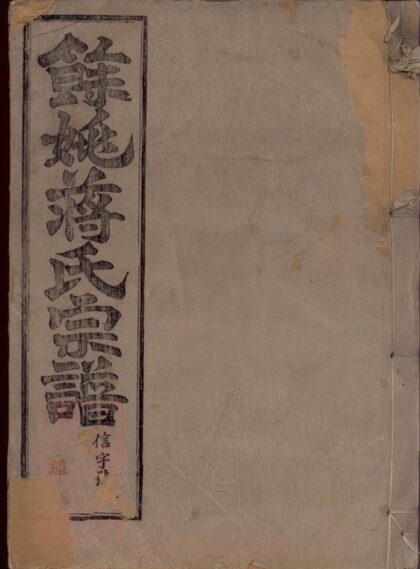 餘姚蔣氏宗譜
信字號